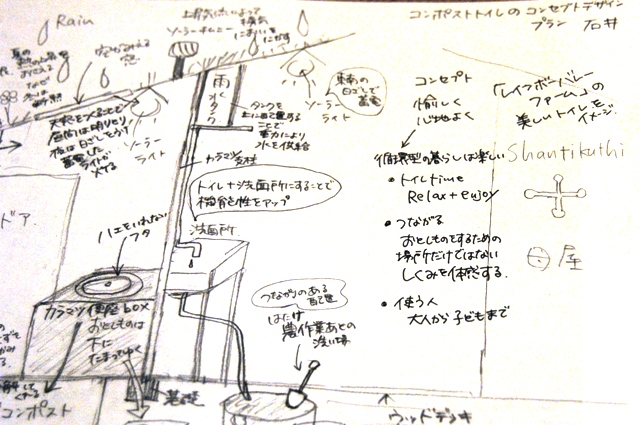 コンポストトイレの コンセプトデザイン
プラン 石井
Rain
上昇気流によって換気
においをにがす
ソーラーチムニー
空がみえる
窓
天窓をつくることで
昼間は明りとり
夜は日ざしをうけ
蓄電した
ライトが
ソーラー
ライト
雨水タンク
タンクを
上に設置する
ことで
重力により
水を供給
ソーラー
ライト
東南の
日ざしで
蓄電
カラマツ
支柱
トイレ+洗面所にすることで
機能性をアップ
洗面所
ハエをいれない
フタ
ドア
カラマツ便座box
おとしものは
下に
たまってゆく
コンポスト
基礎
つながりのある
配置
はたけ
農作業あとの
洗い場
ウッドデッキ
コンセプト
愉しく
心地よく
「レインボーバレー
ファーム」の
美しいトイレを
イメージ
循環型の暮らしは楽しい
Shantikuthi
• トイレtime
Relax + enjoy
• つながる
おとしものをするための
場所だけではない
しくみを体感する.
屋
• 使う人
大人から子どもまで